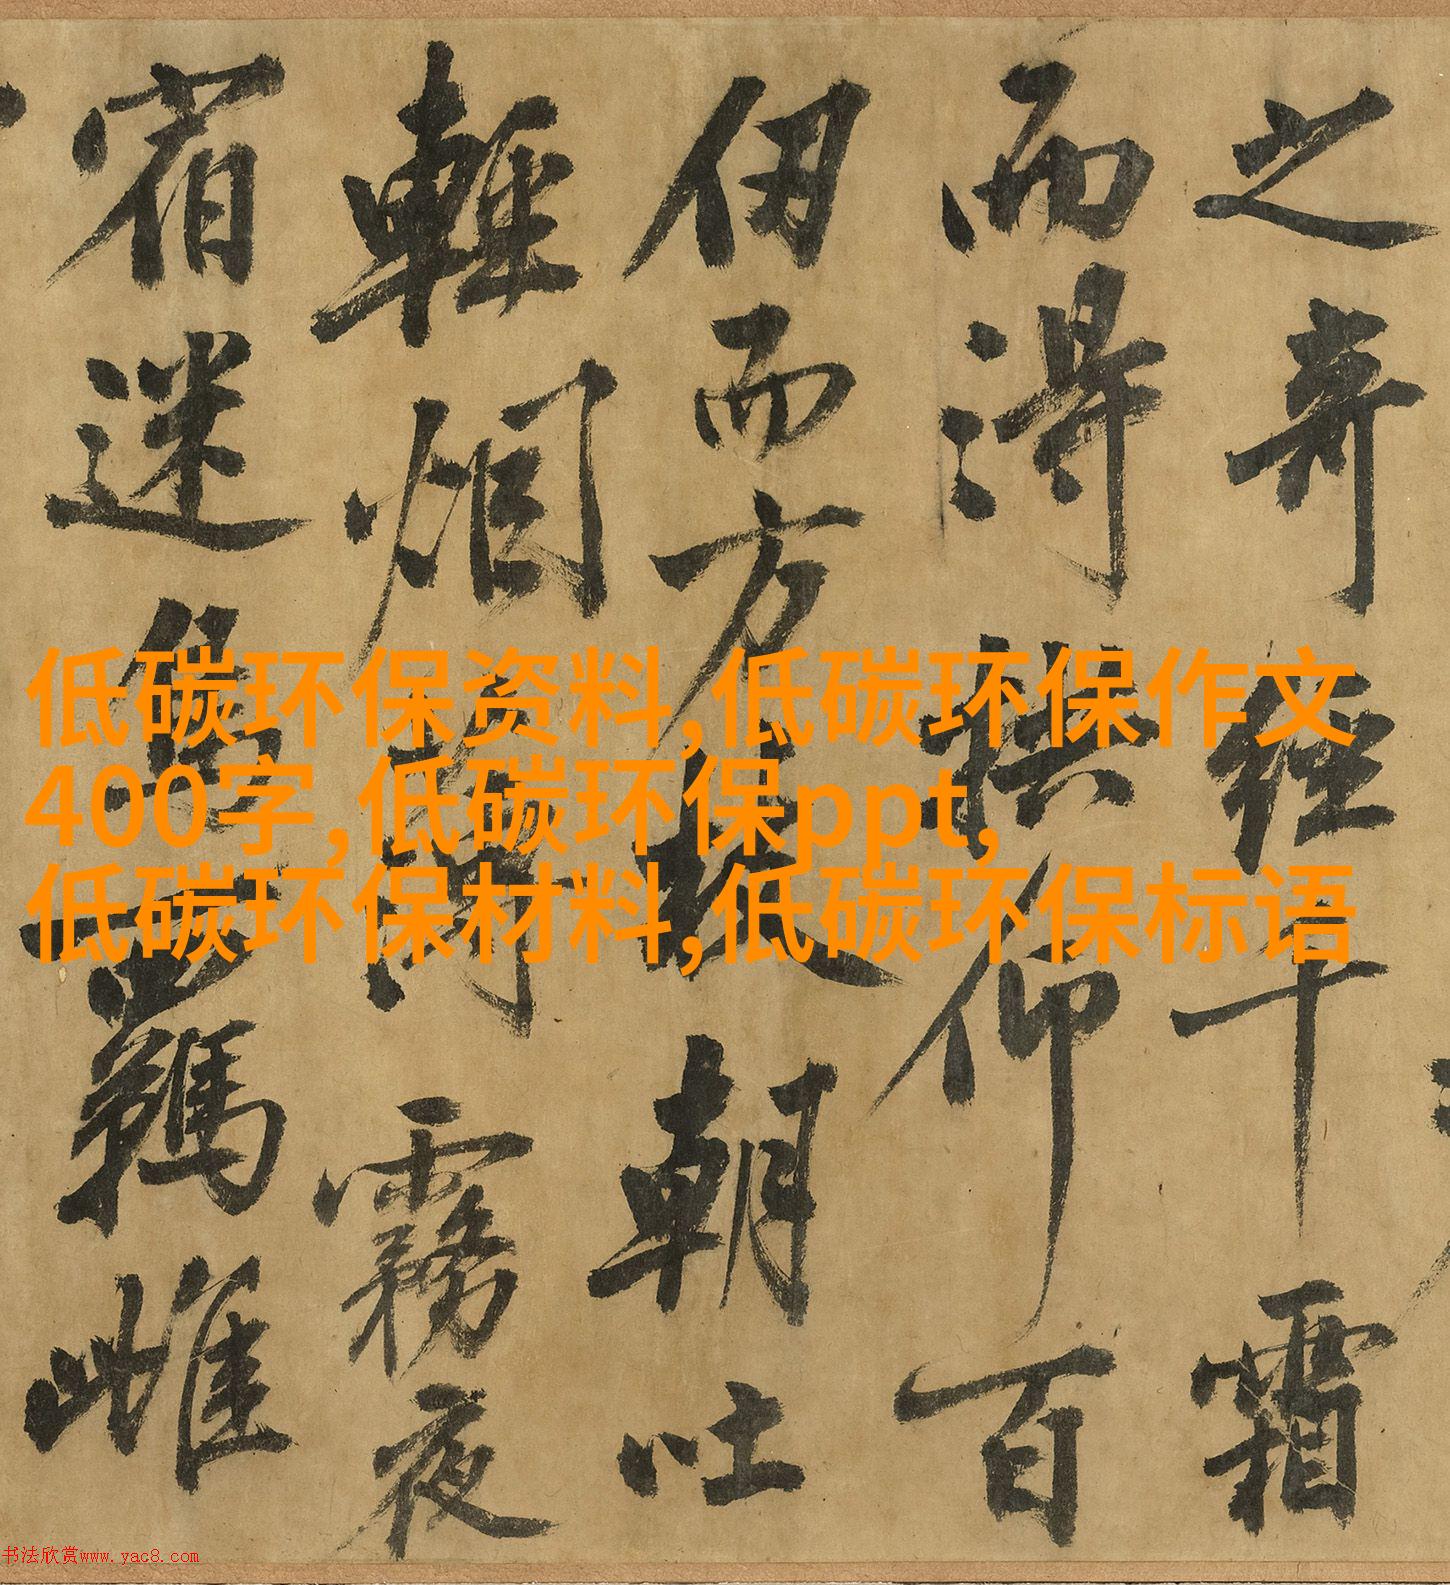 之奇經千霜
而得拱仰百
仞而方枝朝吐
輕烟薄霧夜
宿迷鳥羈雌
低碳环保资料,低碳环保作文
400字,低碳环保ppt,
低碳环保材料,低碳环保标语
书法欣赏www.yac8.com